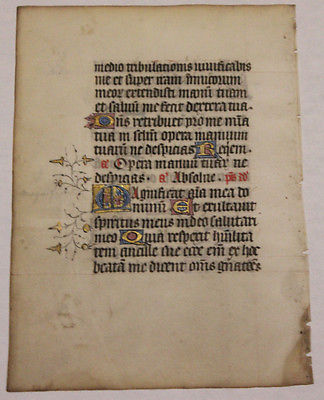 medio tribulationis vivificabis
me et super iram inimicorum
meor extendisti manū tuam
et salvū me fecit dextera tua.
Dns retribuet pro me mia
tua in sclm opera manuum
tuarū ne despicias Reqiem.
a Opera manuū tuar ne
despicias. a Absolve. ps d
Magnificat aīa mea do
minum Et exultavit
spiritus meus in deo salutari
meo Quia respexit humilita
tem ancille sue ecce em ex hoc
beatā me dicent omīs gnātões